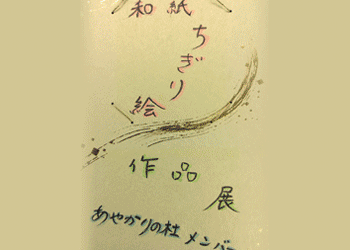 和紙
ちぎり
絵
作品
展
あやかりの杜 メンバー